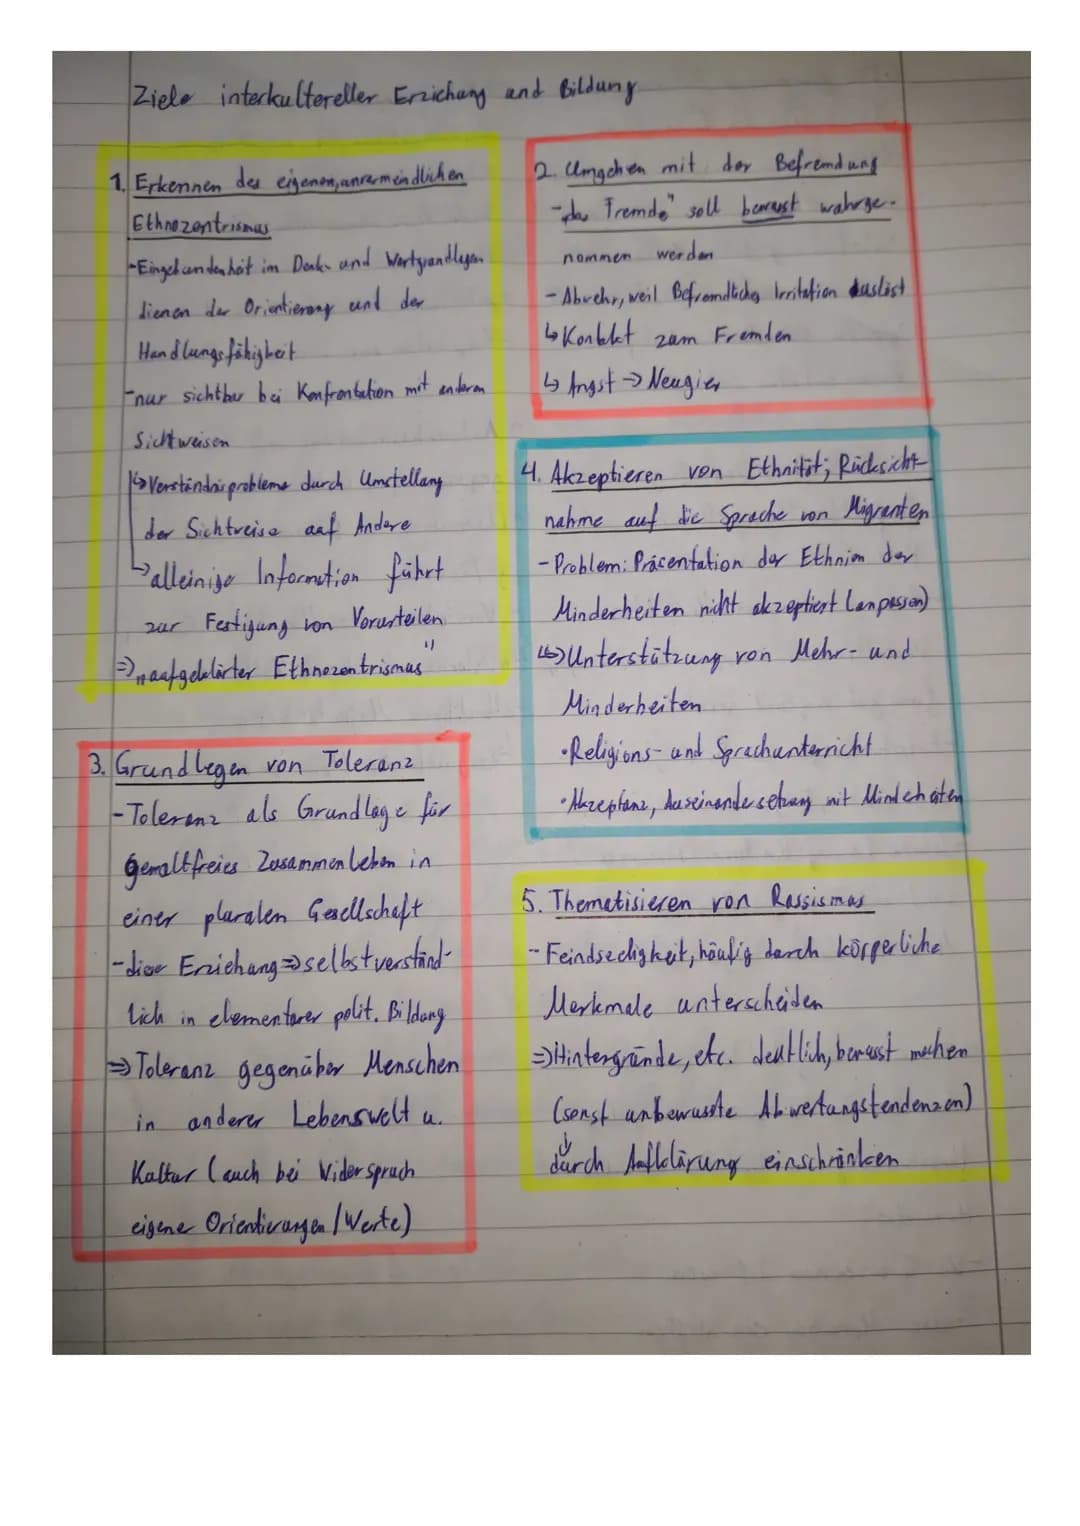 Ziele interkultereller Erziehung und Bildung
1. Erkennen des eigenen, unvermeindlichen
Ethnozentrismus
- Eingebundenheit im Denk- und Wertgrundlagen
dienen der Orientierung und der
Handlungsfähigkeit
- nur sichtbar bei Konfrontation mit anderen
Sichtweisen
↳ Verständnisprobleme durch Umstellung
der Sichtweise auf Andere
↳ alleinige Information führt
zur Festigung von Vorurteilen
⇒ "aufgeklärter Ethnozentrismus"
2. Umgehen mit der Befremdung
- "das Fremde" soll bewusst wahrge-
nommen werden
- Abwehr, weil Befremdliches Irritation auslöst
↳ Kontakt zum Fremden
↳ Angst → Neugier
3. Grundlegen von Toleranz
- Toleranz als Grundlage für
gewaltfreies Zusammenleben in
einer pluralen Gesellschaft
- diese Erziehung ⇒ selbstverständ-
lich in elementarer polit. Bildung
⇒ Toleranz gegenüber Menschen
in anderer Lebenswelt u.
Kultur (auch bei Widerspruch
eigene Orientierungen / Werte)
4. Akzeptieren von Ethnität; Rücksicht-
nahme auf die Sprache von Migranten
- Problem: Präsentation der Ethnien der
Minderheiten nicht akzeptiert (anpassen)
↳ Unterstützung von Mehr- und
Minderheiten
• Religions- und Sprachunterricht
• Akzeptanz, Auseinandersetzung mit Minderheiten
5. Thematisieren von Rassismus
- Feindseeligkeit, häufig durch körperliche
Merkmale unterscheiden
⇒ Hintergründe, etc. deutlich, bewusst machen
(sonst unbewusste Abwertungstendenzen)
↓
durch Aufklärung einschränken